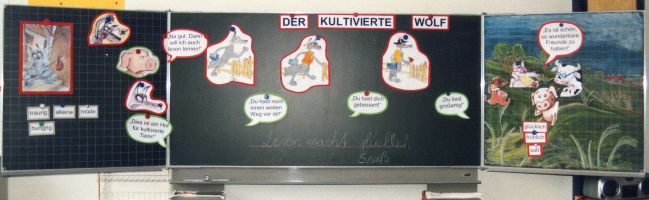 DER KULTIVIERTE WOLF
„Na gut. Dann
will ich auch
lesen lernen!“
traurig alleine müde
hungrig
„Dies ist ein Hof
für kultivierte
Tiere!“
„Du hast noch
einen weiten
Weg vor dir!“
„Du hast dich
gebessert!“
„Du liest
großartig!“
Lesen macht glücklich
Spaß
„Es ist schön,
so wunderbare
Freunde zu
haben!“
glücklich
fröhlich
satt